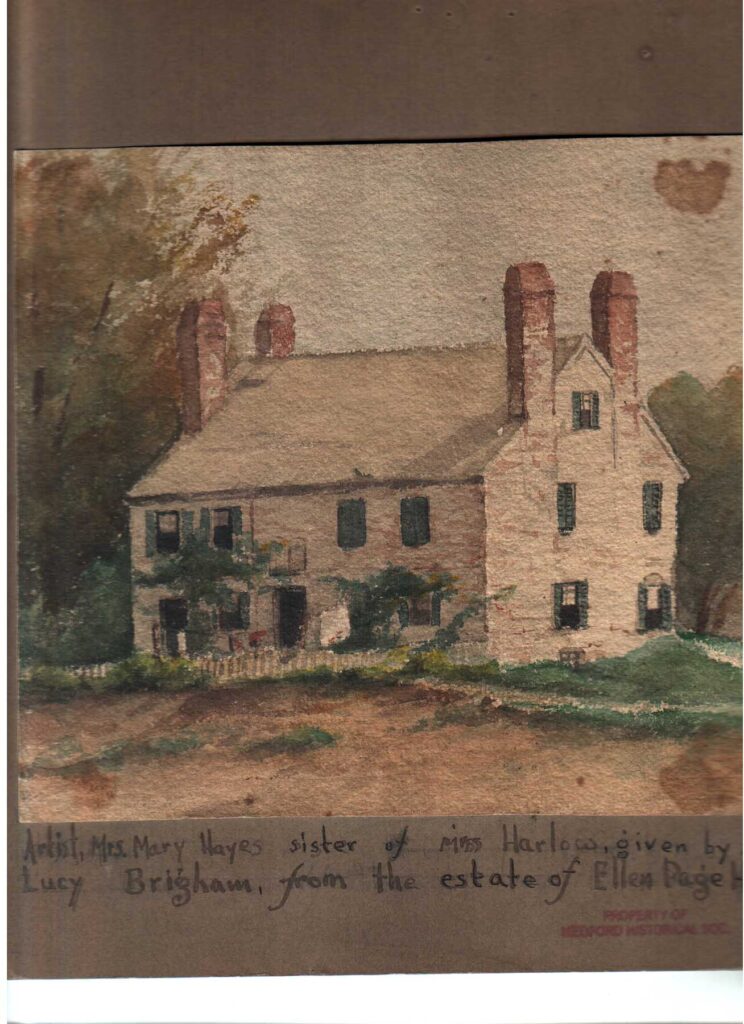 Artist, Mrs. Mary Hayes sister of Miss Harlow, given by
Lucy Brigham, from the estate of Ellen Page H
PROPERTY OF
MEDFORD HISTORICAL SOC.